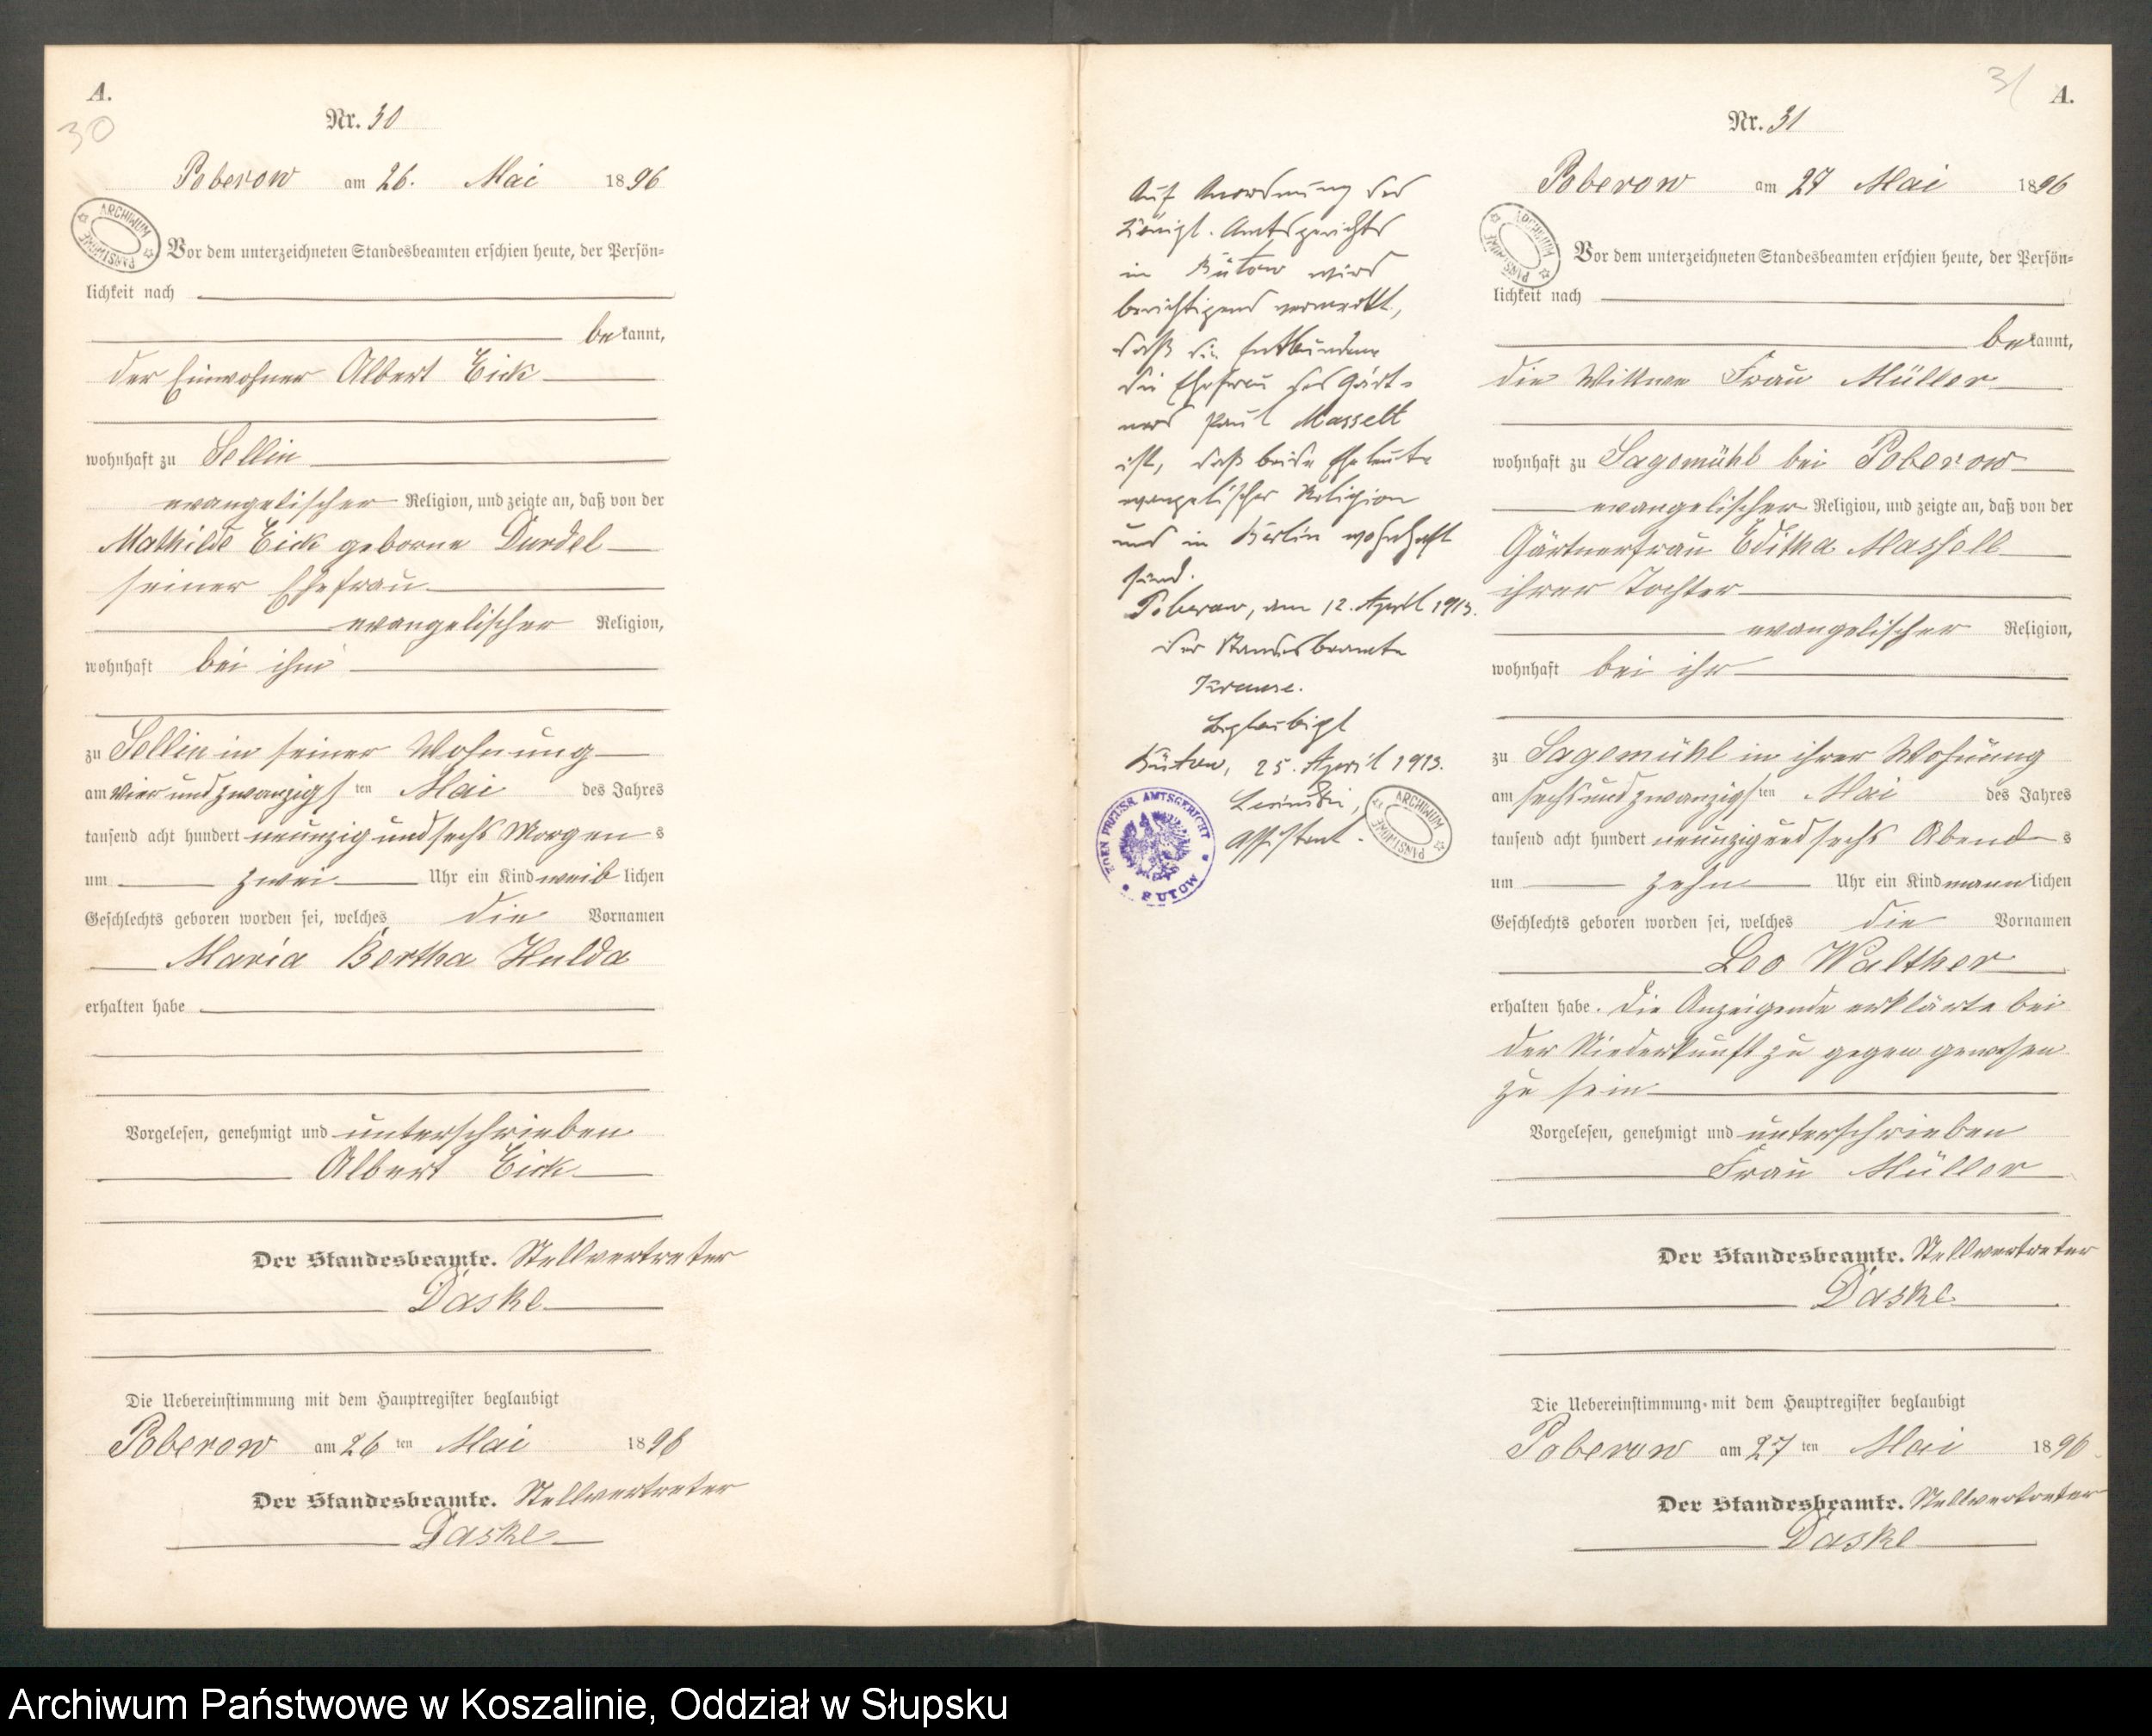 A.
30
Nr. 30
Poberow am 26. Mai 1896
ARCHIWUM PAŃSTWOWE
Vor dem unterzeichneten Standesbeamten erschien heute, der Persön-
lichkeit nach
bekannt,
der Einwohner Albert Eick
wohnhaft zu Sellin
evangelischer Religion, und zeigte an, daß von der
Mathilde Eick geborne Durdel
seiner Ehefrau
evangelischer Religion,
wohnhaft bei ihm
zu Sellin in seiner Wohnung
am vier und zwanzigsten Mai des Jahres
tausend acht hundert neunzig und sechs Morgens
um zwei Uhr ein Kind weiblichen
Geschlechts geboren worden sei, welches die Vornamen
Maria Bertha Hulda
erhalten habe
Vorgelesen, genehmigt und unterschrieben
Albert Eick
Der Standesbeamte. Stellvertreter
Daske
Die Uebereinstimmung mit dem Hauptregister beglaubigt
Poberow am 26ten Mai 1896
Der Standesbeamte. Stellvertreter
Daske
Auf Anordnung des
Königl. Amtsgerichts
in Bütow wird
berichtigend vermerkt,
daß die Entbundene
die Ehefrau des Gärt-
ners Paul Massett
ist, daß beide Eheleute
evangelischer Religion
und in Berlin wohnhaft
sind.
Poberow, am 12. April 1913.
Der Standesbeamte
Krause.
Beglaubigt
Bütow, 25. April 1913.
Assistent.
KGL. PREUSS. AMTSGERICHT
BÜTOW
ARCHIWUM PAŃSTWOWE
31
A.
Nr. 31
Poberow am 27 Mai 1896
ARCHIWUM PAŃSTWOWE
Vor dem unterzeichneten Standesbeamten erschien heute, der Persön-
lichkeit nach
bekannt,
die Wittwe Frau Müller
wohnhaft zu Sagemühl bei Poberow
evangelischer Religion, und zeigte an, daß von der
Gärtnerfrau Editha Massett
ihrer Tochter
evangelischer Religion,
wohnhaft bei ihr
zu Sagemühl in ihrer Wohnung
am sechs und zwanzigsten Mai des Jahres
tausend acht hundert neunzig und sechs Abends
um zehn Uhr ein Kind mannlichen
Geschlechts geboren worden sei, welches die Vornamen
Leo Walther
erhalten habe. Die Anzeigende erklärte bei
der Niederkunft zu gegen gewesen
zu sein
Vorgelesen, genehmigt und unterschrieben
Frau Müller
Der Standesbeamte. Stellvertreter
Daske
Die Uebereinstimmung mit dem Hauptregister beglaubigt
Poberow am 27ten Mai 1896
Der Standesbeamte. Stellvertreter
Daske
Archiwum Państwowe w Koszalinie, Oddział w Słupsku